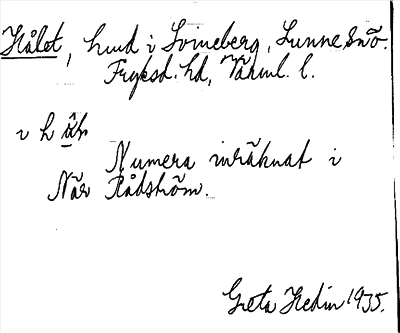 Hålet, hmd i Svineberg, Sunne snö.
Fryksd. hd, Värml. l.
v h
Numera inräknat i
När Rådström.
Greta Hedin 1935.